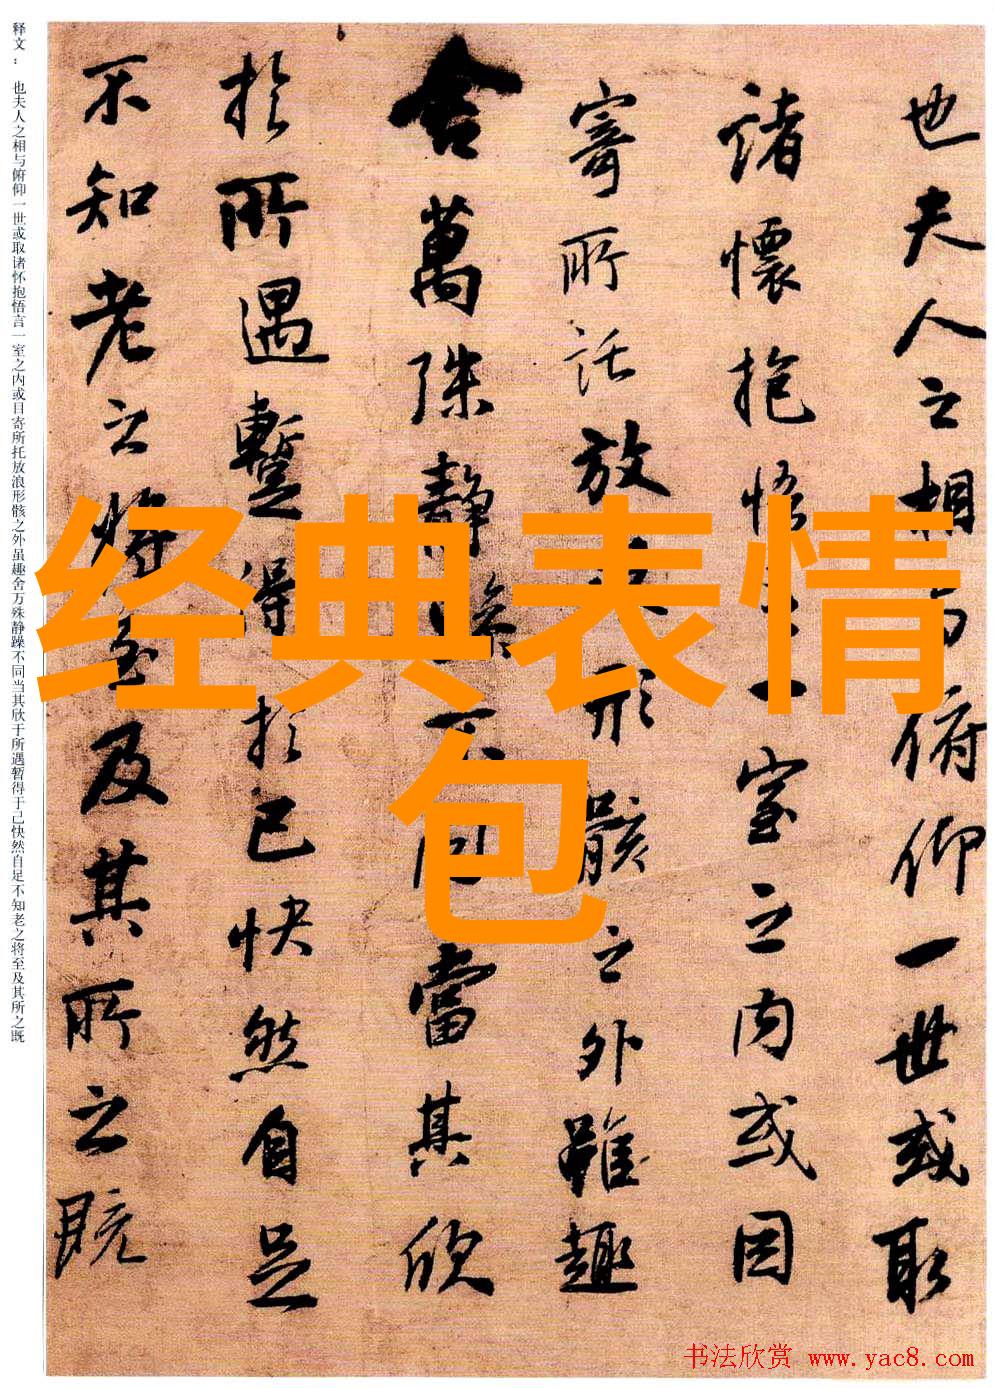 也夫人之相与俯仰一世或取
諸懷抱悟言一室之内或因
寄所託放浪形骸之外雖趣
舍萬殊静躁不同當其欣
於所遇暫得於己快然自足
不知老之将至及其所之既
释文： 也夫人之相与俯仰一世或取诸怀抱悟言一室之内或目寄所托放浪形骸之外虽趣舍万殊静躁不同当其欣于所遇暂得于己快然自足不知老之将至及其所之既
经典表情
包
书法欣赏 www.yac8.com